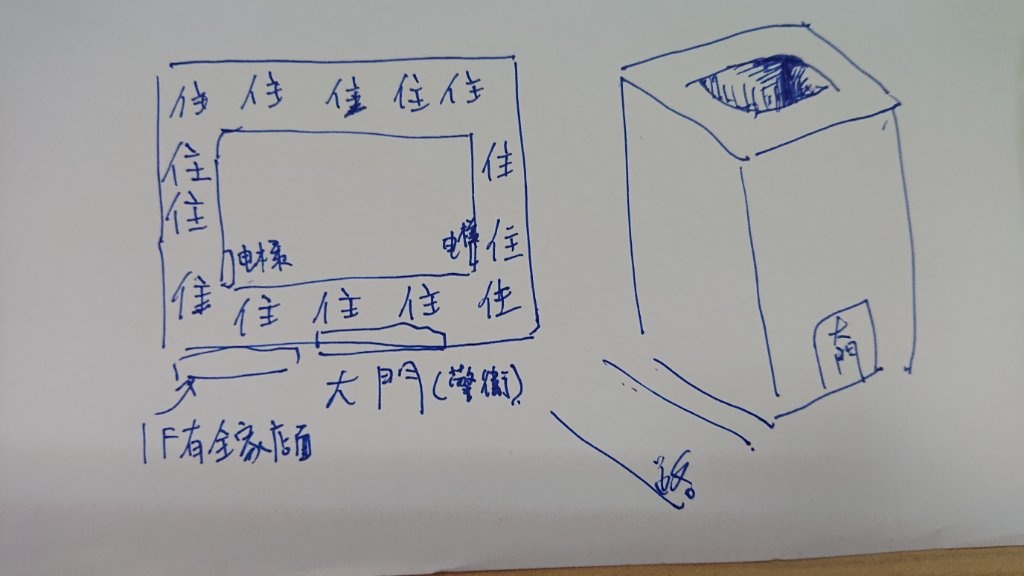 住 住 住 住 住
住 住
住 住
住 住 住 住 住
电梯 电梯
大門(警衛)
1F有全家店面
大門
路